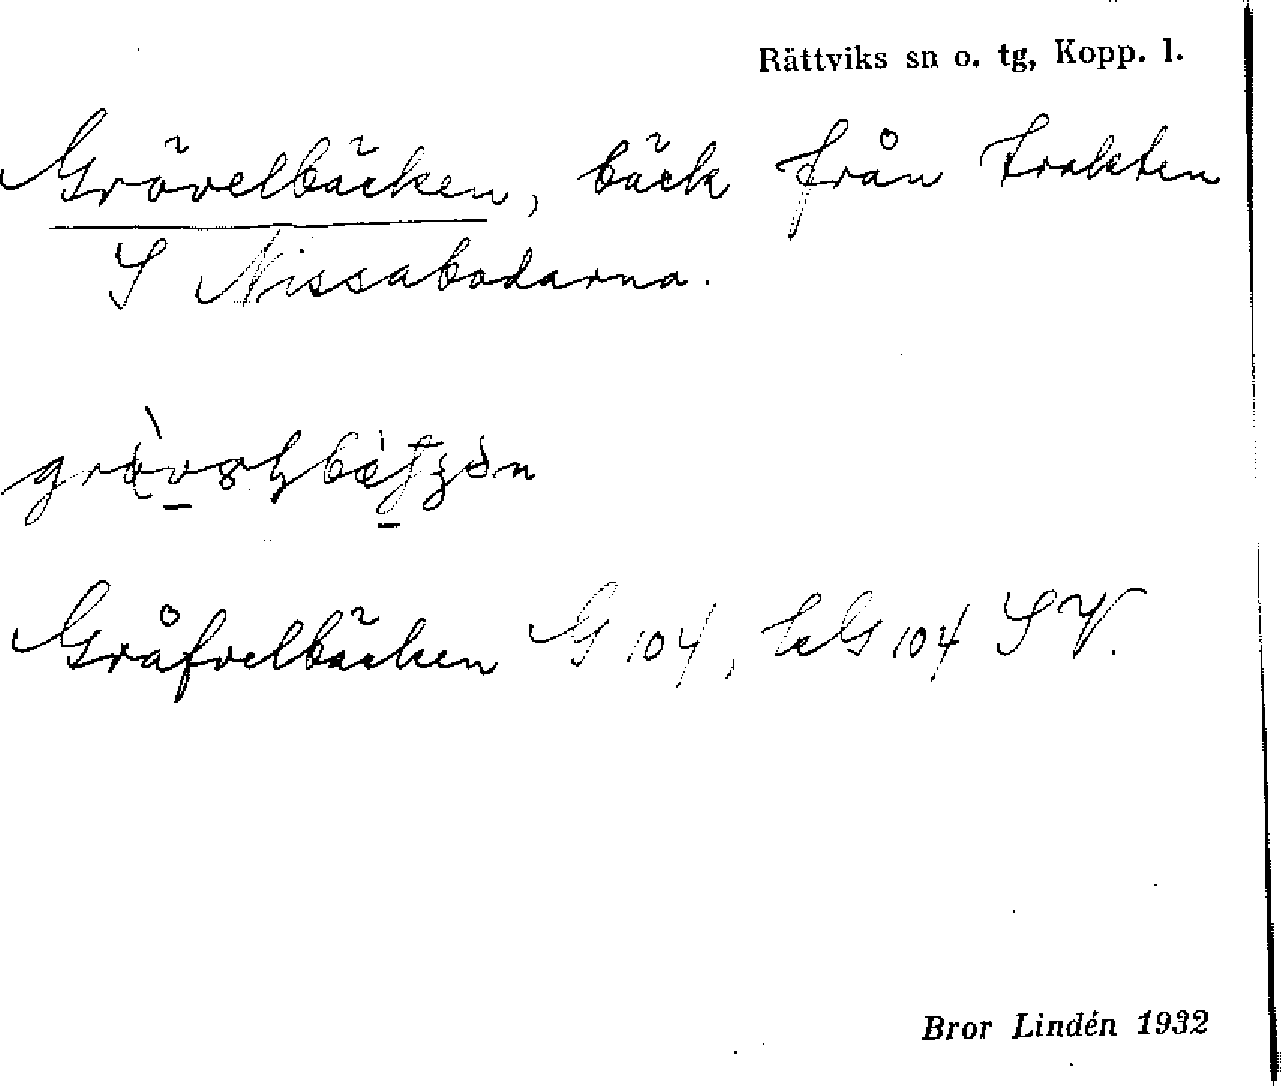 Rättviks sn o. tg, Kopp. l.
Grövelbäcken, bäck från trakten
S Nissabodarna.
Gråfvelbäcken G 104, kG 104 SV.
Bror Lindén 1932